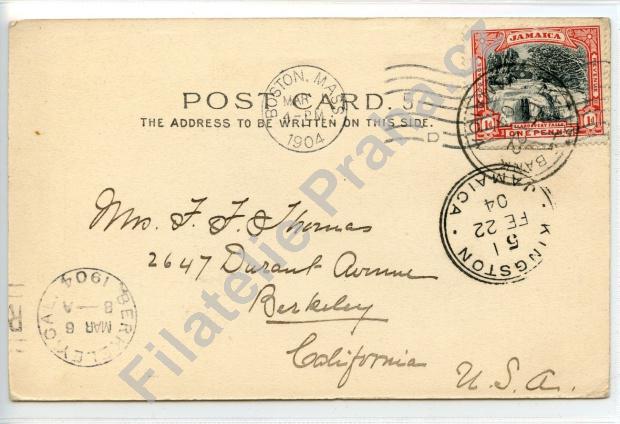 JAMAICA
POSTAGE
LLANDOVERY FALLS
1d ONE PENNY 1d
BOSTON, MASS.
MAR
PM
1904
POST CARD.
THE ADDRESS TO BE WRITTEN ON THIS SIDE.
BANK
JAMAICA
KINGSTON · JAMAICA ·
51
FE 22
04
Mrs. F. F. Thomas
2647 Durant Avenue
Berkeley
California
U.S.A.
BERKELEY, CAL.
1904
MAR 6
8-A
Filatelie Praha.cz